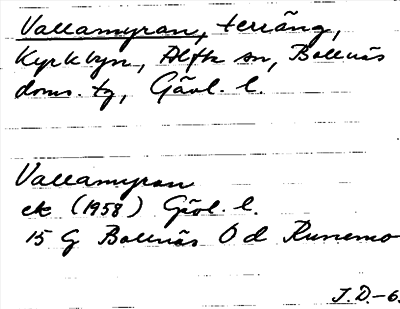 Vallamyran, terräng,
Kyrkbyn, Alfta sn, Bollnäs
doms. tg, Gävl. l.
Vallamyran
ek (1958) Gävl. l.
15 G Bollnäs Od Runemo
J.D.-6